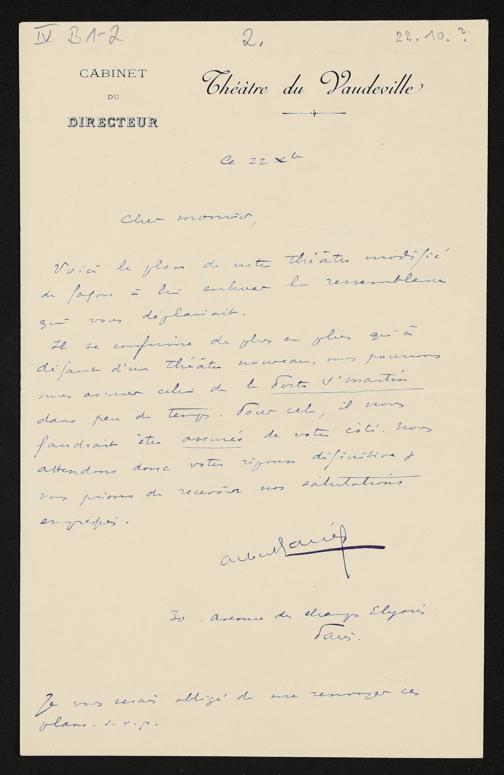 IV B1-2
2.
22.10.?
CABINET
DU
DIRECTEUR
Théâtre du Vaudeville
Ce 22 Xbre
Cher monsieur,
Voici le plan de notre théâtre modifié
de façon à lui enlever la ressemblance
qui vous déplaisait.
Il se confirme de plus en plus qu'à
défaut d'un théâtre nouveau, nous pourrions
nous assurer celui de la Porte St Martin
dans peu de temps. Pour cela, il nous
faudrait être assurés de votre côté. Nous
attendons donc votre réponse définitive &
vous prions de recevoir nos salutations
empressées.
Albert Carré
30. avenue des champs Elysées
Paris.
Je vous serais obligé de me renvoyer ces
plans. s.v.p.